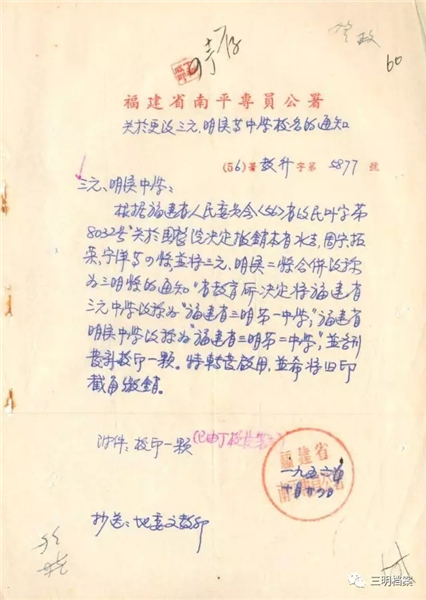 60
福建省南平專員公署
关於更改三元、明溪等中学校名的通知
(56)署教升字第5877號
三元、明溪中学:
根据福建省人民委员会(56)省政民叶字第
8032号"关於国务院决定撤銷本省水吉、周宁、柘
荣、宁洋等四縣並将三元、明溪二縣合併改称
为三明縣的通知"省教育所决定将"福建省
三元中学改称为"福建省三明第一中学","福建省
明溪中学改称为"福建省三明第二中学",並各刊
發新校印一颗。特轉發啟用,並希将旧印
截角繳銷。
附件:校印一颗
福建省
南平專員公署
一九五六年
抄送:地委文教部
三明档案